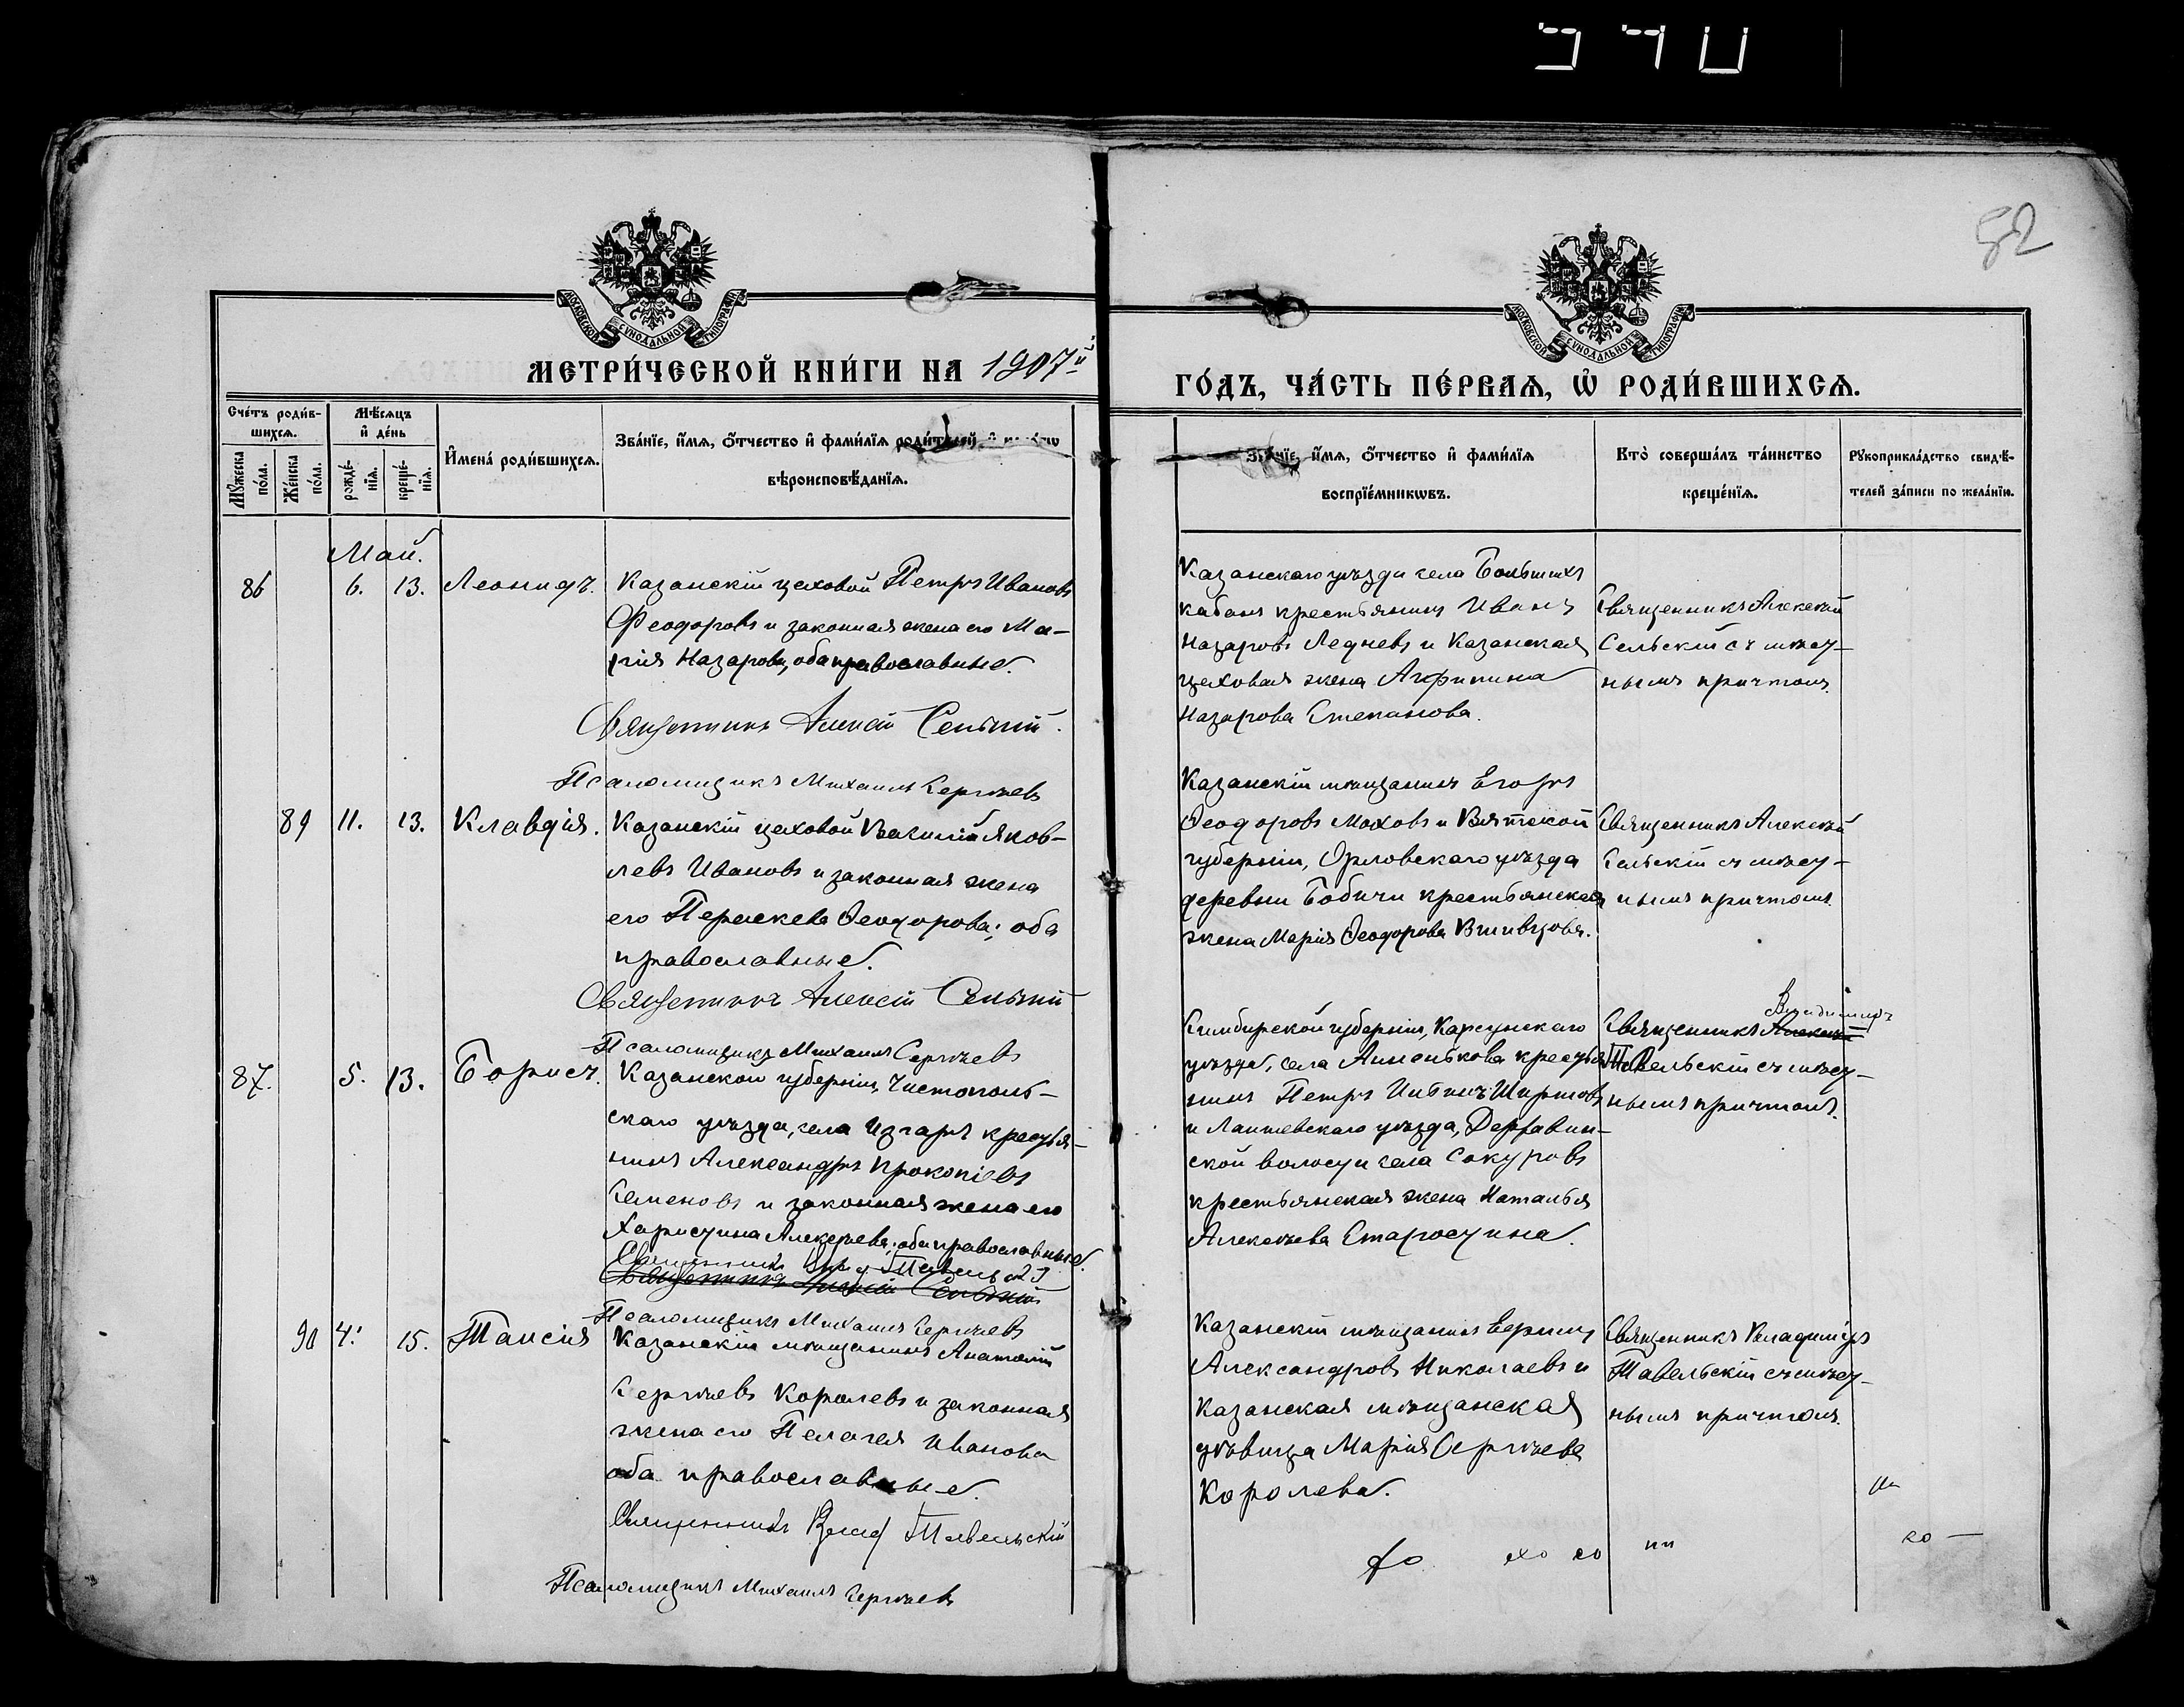 52
МОСКОВСКОЙ СУНОДАЛЬНОЙ ТИПОГРАФІИ
МОСКОВСКОЙ СУНОДАЛЬНОЙ ТИПОГРАФІИ
МЕТРИ́ЧЕСКОЙ КНИ́ГИ НА 1907й
ГО́ДЪ, ЧА́СТЬ ПЕ́РВАѦ, Ѡ҆ РОДИ́ВШИХСѦ.
Сче́тъ роди́в-
шихсѧ.
Мѣ́сѧцъ
и҆ де́нь
Мꙋ́жеска по́ла.
Же́нска по́ла.
рожде́-
нїѧ.
креще́-
нїѧ.
И҆мена́ роди́вшихсѧ.
Зва́нїе, и҆́мѧ, ѻ҆́тчество и҆ фами́лїѧ роди́телей, и҆
вѣроисповѣ́данїѧ.
Зва́нїе, и҆́мѧ, ѻ҆́тчество и҆ фами́лїѧ
воспрїе́мникѡвъ.
Кто̀ соверша́лъ та́инство
креще́нїѧ.
Рꙋкоприкла́дство свидѣ́-
телей за́писи по жела́нїю.
Май.
86 6. 13. Леонидъ.
Казанскій цеховой Петръ Ивановъ
Феодоровъ и законная жена его Ма-
рія Назарова, оба православные.
Священникъ Алексій Сельскій.
Псаломщикъ Михаилъ Сергѣевъ
Казанскаго уѣзда села Большихъ
кабанъ крестьянинъ Иванъ
Назаровъ Ледневъ и Казанская
цеховая жена Агрипина
Назарова Степанова.
Священникъ Алексѣй
Сельскій съ мѣст-
нымъ причтомъ.
89 11. 13. Клавдія.
Казанскій цеховой Василій Яков-
левъ Ивановъ и законная жена
его Параскева Ѳеодорова; оба
православные.
Священникъ Алексій Сельскій
Псаломщикъ Михаилъ Сергѣевъ
Казанскій мѣщанинъ Егоръ
Ѳеодоровъ Моховъ и Вятской
губерніи, Орловскаго уѣзда
деревни Бобичи крестьянская
жена Марія Ѳеодорова Вшивцова.
Священникъ Алексѣй
Сельскій съ мѣст-
нымъ причтомъ.
87. 5. 13. Борисъ.
Казанской губерніи, Чистополь-
скаго уѣзда, села Изгаръ крестья-
нинъ Александръ Прокопіевъ
Семеновъ и законная жена его
Харитина Алексѣева; оба православные.
Священникъ Влад Тавельскій
Священникъ Алексій Сельскій
Псаломщикъ Михаилъ Сергѣевъ
Симбирской губерніи, Карсунскаго
уѣзда, села Анненкова крестья-
нинъ Петръ Ширшовъ
и Лаишевскаго уѣзда, Державин-
ской волости села Сокуровъ
крестьянская жена Наталья
Алексѣева Старостина.
Владиміръ
Священникъ Алексѣй
Тавельскій съ мѣст-
нымъ причтомъ.
90 4. 15. Таисія
Казанскій мѣщанинъ Анатолій
Сергѣевъ Королевъ и законная
жена его Пелагея Иванова
оба православные.
Священникъ Влад Тавельскій
Псаломщикъ Михаилъ Сергѣевъ
Казанскій мѣщанинъ
Александровъ Николаевъ и
Казанская мѣщанская
дѣвица Марія Сергѣева
Королева.
Священникъ Владиміръ
Тавельскій съ мѣст-
нымъ причтомъ.